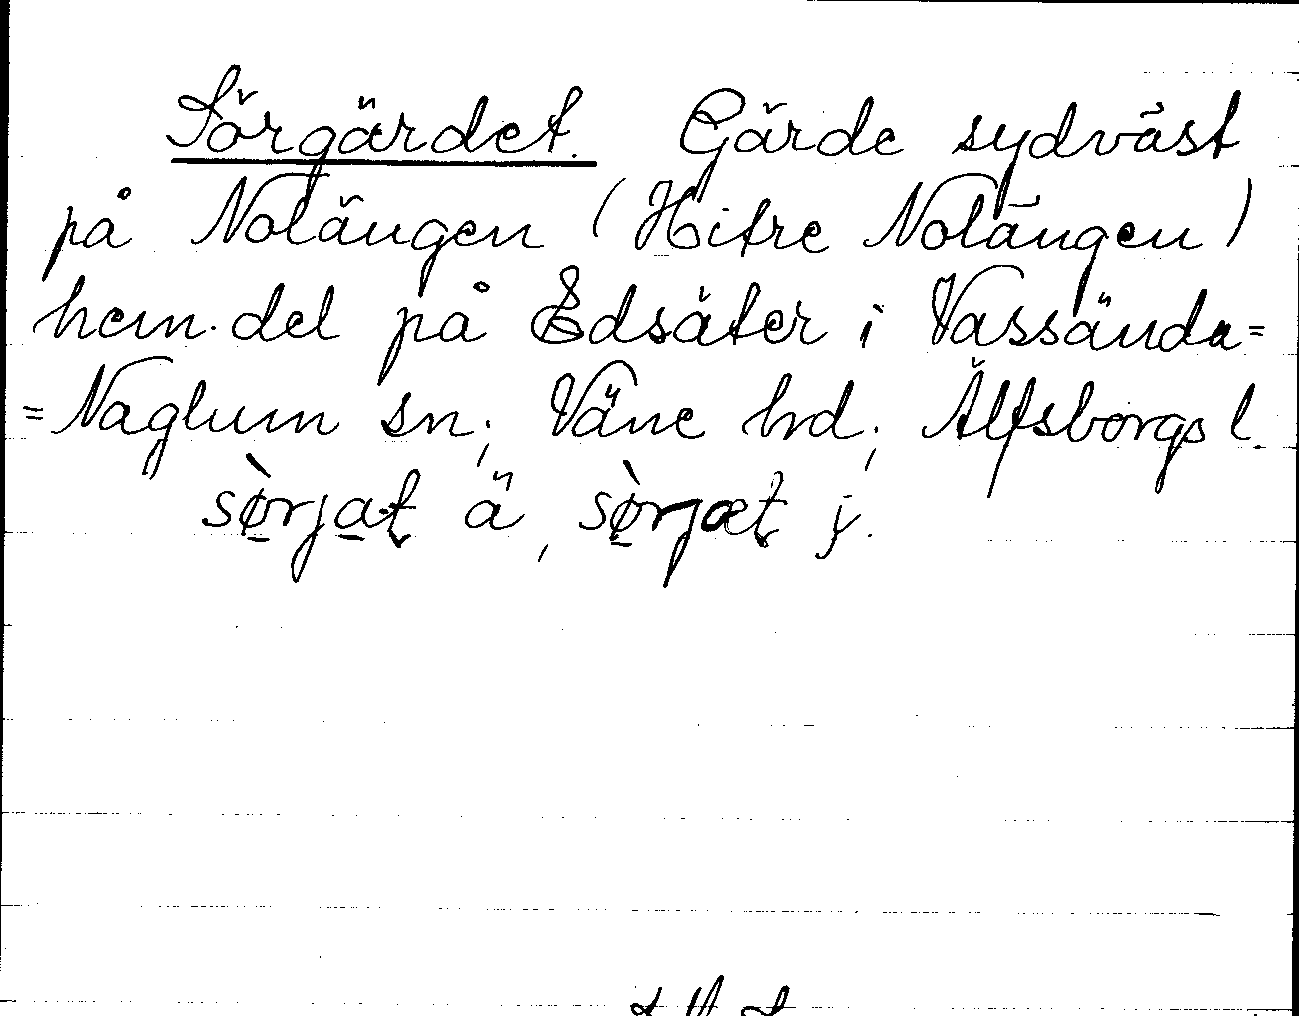 Sörgärdet. Gärde sydväst
på Notängen (Hitre Notängen)
hem. del på Edsäter i Vassända=
=Naglum sn; Väne hd; Älfsborgs l.
sø̀rjat ä, sø̀rjæt y.